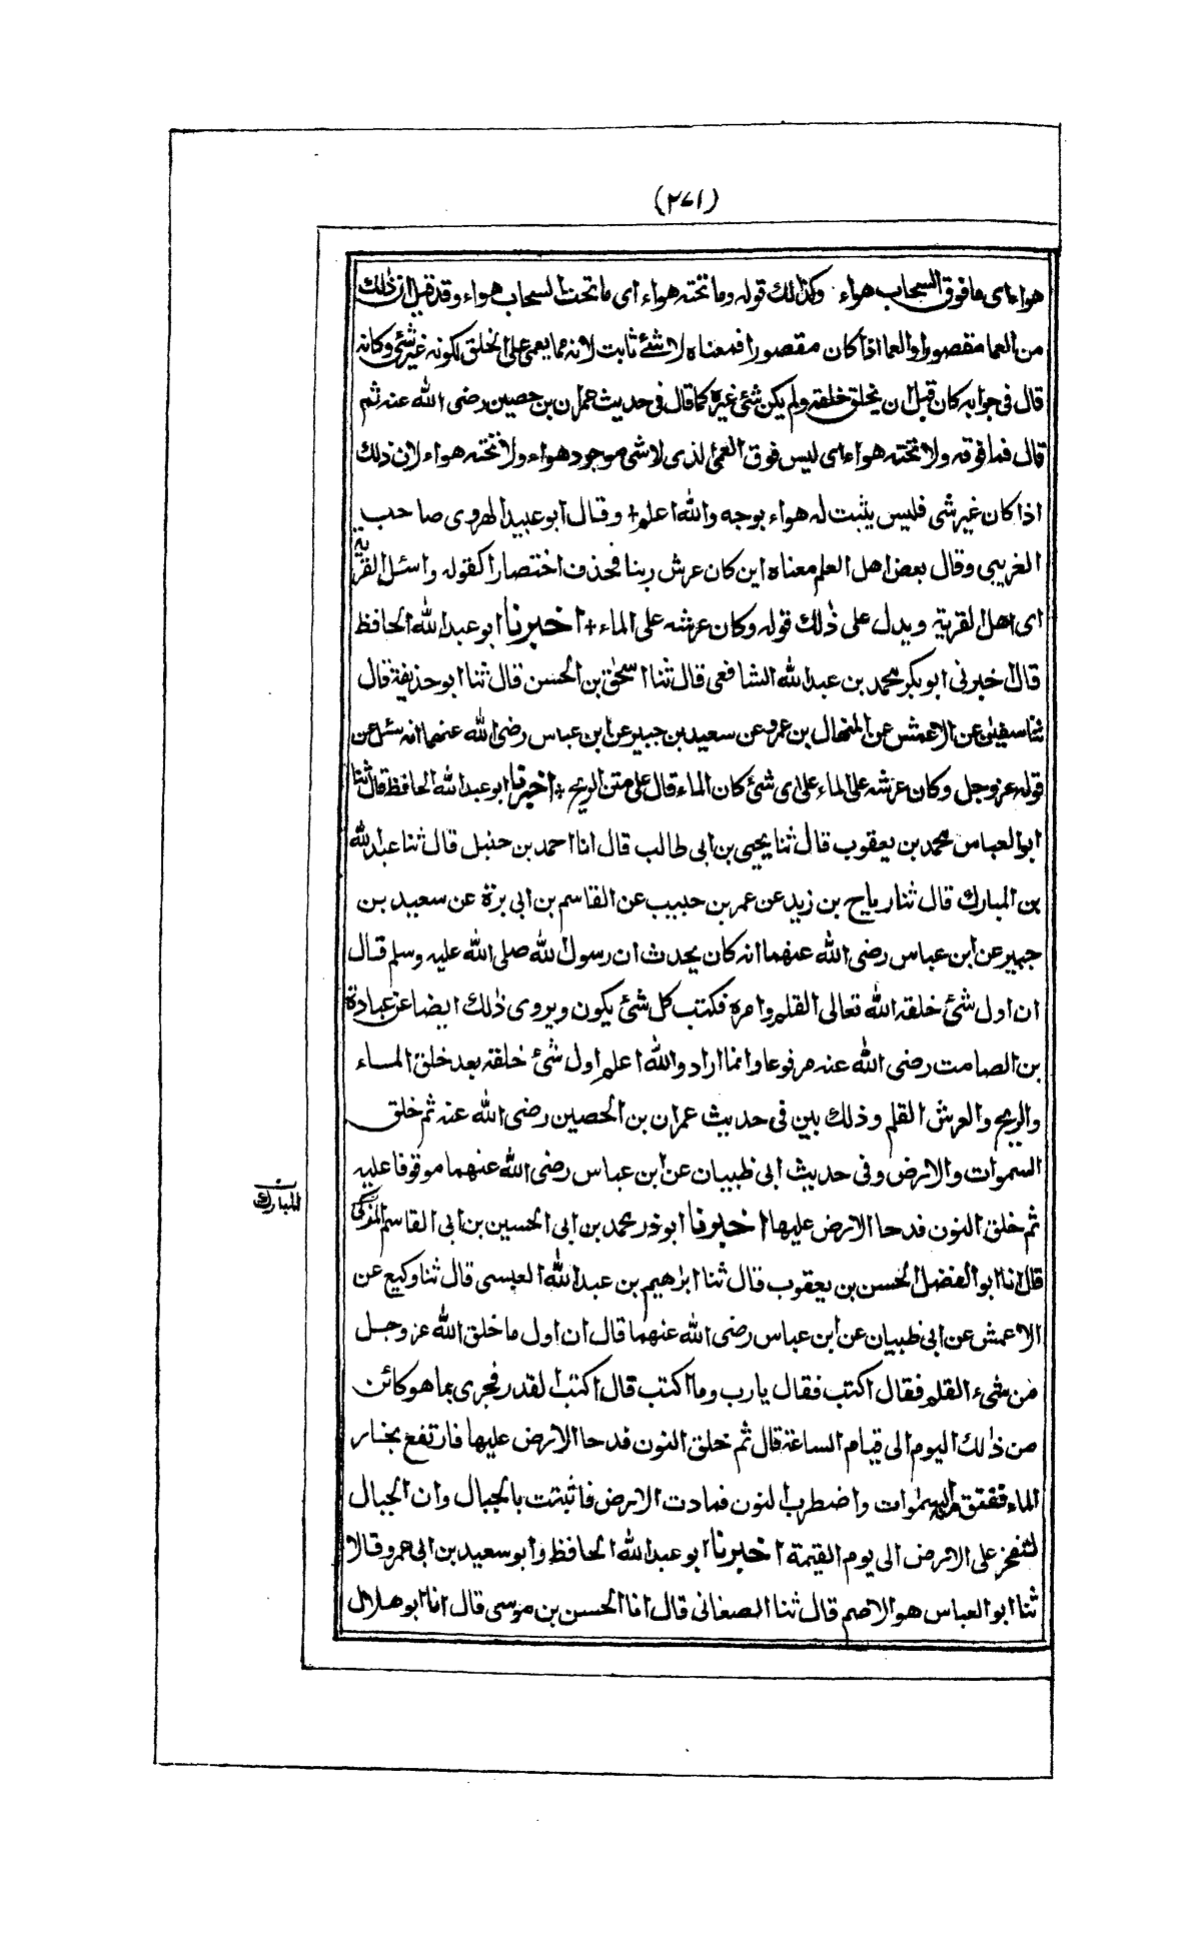 (۲۷۱)
هواء اى ما فوق السحاب هواء وكذلك قوله وما تحته هواء اى ما تحت السحاب هواء وقد قيل ان ذلك
من العما مقصورا والعما اذا كان مقصورا فمعناه لا شئ ثابت لانه مما يعمى على الخلق لكونه غير شئ وكانه
قال فى جوابه كان قبل ان يخلق خلقه ولم يكن شئ غيره كما قال فى حديث عمران بن حصين رضى الله عنه ثم
قال فما فوقه ولا تحته هواء اى ليس فوق العمى الذى لا شى موجود هواء ولا تحته هواء لان ذلك
اذا كان غير شى فليس يثبت له هواء بوجه والله اعلم + وقال ابو عبيد الهروى صاحب
الغريبى وقال بعض اهل العلم معناه اين كان عرش ربنا فحذف اختصارا كقوله واسئل القرية
اى اهل القرية ويدل على ذلك قوله وكان عرشه على الماء + اخبرنا ابو عبد الله الحافظ
قال اخبرنى ابو بكر محمد بن عبد الله الشافعى قال ثنا اسحٰق بن الحسن قال ثنا ابو حذيفة قال
ثنا سفيٰن عن الاعمش عن المنهال بن عمرو عن سعيد بن جبير عن ابن عباس رضى الله عنهما انه سئل عن
قوله عز وجل وكان عرشه على الماء على اى شئ كان الماء قال على متن الريح + اخبرنا ابو عبد الله الحافظ قال ثنا
ابو العباس محمد بن يعقوب قال ثنا يحيى بن ابى طالب قال انا احمد بن حنبل قال ثنا عبد الله
بن المبارك قال ثنا رباح بن زيد عن عمر بن حبيب عن القاسم بن ابى بزة عن سعيد بن
جبير عن ابن عباس رضى الله عنهما انه كان يحدث ان رسول الله صلى الله عليه وسلم قال
ان اول شئ خلقه الله تعالى القلم وامره فكتب كل شئ يكون ويروى ذلك ايضا عن عبادة
بن الصامت رضى الله عنه مرفوعا وانما اراد والله اعلم اول شئ خلقه بعد خلق الماء
والريح والعرش القلم وذلك بين فى حديث عمران بن الحصين رضى الله عنه ثم خلق
السموات والارض وفى حديث ابى ظبيان عن ابن عباس رضى الله عنهما موقوفا عليه
ثم خلق النون فدحا الارض عليها اخبرنا ابو ذر محمد بن ابى الحسين بن ابى القاسم المذكى
المبارك
قال انا ابو الفضل الحسن بن يعقوب قال ثنا ابرٰهيم بن عبد الله العبسى قال ثنا وكيع عن
الاعمش عن ابى ظبيان عن ابن عباس رضى الله عنهما قال ان اول ما خلق الله عز وجل
من شىء القلم فقال اكتب فقال يا رب وما اكتب قال اكتب القدر فجرى بما هو كائن
من ذلك اليوم الى قيام الساعة قال ثم خلق النون فدحا الارض عليها فارتفع بخار
الماء ففتق منه السمٰوات واضطرب النون فمادت الارض فاثبتت بالجبال وان الجبال
لتفخر على الارض الى يوم القيمة اخبرنا ابو عبد الله الحافظ وابو سعيد بن ابى عمرو قالا
ثنا ابو العباس هو الاصم قال ثنا الصغانى قال انا الحسن بن موسى قال انا ابو هلال